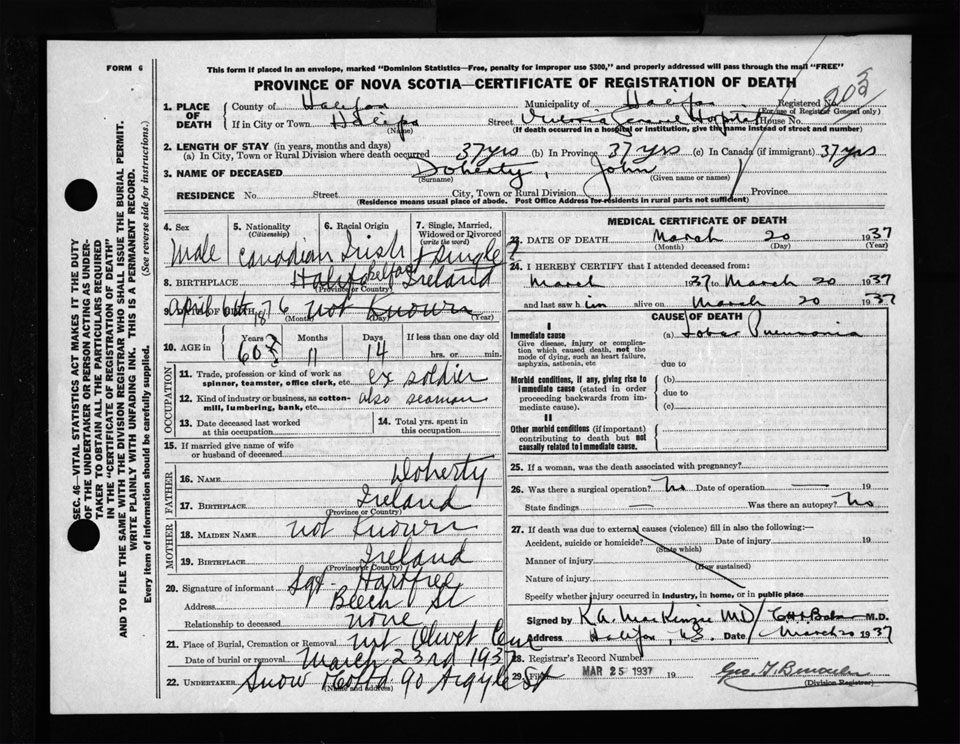 FORM 6
This form if placed in an envelope, marked "Dominion Statistics—Free, penalty for improper use $300," and properly addressed will pass through the mail "FREE"
PROVINCE OF NOVA SCOTIA—CERTIFICATE OF REGISTRATION OF DEATH
1. PLACE OF DEATH County of Halifax Municipality of Halifax Registered No.
(For use of Registrar General only)
If in City or Town Halifax Street Victoria General Hospital House No.
(Name) (If death occurred in a hospital or institution, give this name instead of street and number)
2. LENGTH OF STAY (in years, months and days)
(a) In City, Town or Rural Division where death occurred 37 yrs (b) In Province 37 yrs (c) In Canada (if immigrant) 37 yrs
3. NAME OF DECEASED Doherty, John
(Surname) (Given name or names)
RESIDENCE No. Street City, Town or Rural Division Province
(Residence means usual place of abode. Post Office Address for residents in rural parts not sufficient)
4. Sex 5. Nationality 6. Racial Origin 7. Single, Married, Widowed or Divorced
(Citizenship) (write the word)
Male Canadian Irish Single ?
8. BIRTHPLACE Halifax Belfast Ireland
(Province or Country)
9. DATE OF BIRTH April 6th 1876 not Known
(Month) (Day) (Year)
10. AGE in Years Months Days If less than one day old
60 ? 11 14 hrs. or min.
OCCUPATION
11. Trade, profession or kind of work as spinner, teamster, office clerk, etc. ex soldier
12. Kind of industry or business, as cotton-mill, lumbering, bank, etc. also seaman
13. Date deceased last worked at this occupation 14. Total yrs. spent in this occupation
15. If married give name of wife or husband of deceased
FATHER
16. NAME Doherty
17. BIRTHPLACE Ireland
(Province or Country)
MOTHER
18. MAIDEN NAME not Known
19. BIRTHPLACE Ireland
(Province or Country)
20. Signature of informant Sgt.
Address Beech St
Relationship to deceased none
21. Place of Burial, Cremation or Removal Mt Olivet Cem
Date of burial or removal March 23rd 1937
22. UNDERTAKER Snow 90 Argyle St
(Name and address)
MEDICAL CERTIFICATE OF DEATH
23. DATE OF DEATH March 20 1937
(Month) (Day) (Year)
24. I HEREBY CERTIFY that I attended deceased from:
March 1937 to March 20 1937
and last saw him alive on March 20 1937
CAUSE OF DEATH
I
Immediate cause (a) Lobar Pneumonia
Give disease, injury or complication which caused death, not the mode of dying, such as heart failure, asphyxia, asthenia, etc
due to
Morbid conditions, if any, giving rise to immediate cause (stated in order proceeding backwards from immediate cause).
(b)
due to
(c)
II
Other morbid conditions (if important) contributing to death but not causally related to immediate cause.
25. If a woman, was the death associated with pregnancy?
26. Was there a surgical operation? No Date of operation — 19
State findings — Was there an autopsy? No
27. If death was due to external causes (violence) fill in also the following:—
Accident, suicide or homicide? Date of injury 19
(State which)
Manner of injury
(How sustained)
Nature of injury
Specify whether injury occurred in industry, in home, or in public place
Signed by K.A. MacKenzie MD M.D.
Address Halifax, N.S. Date March 20 1937
28. Registrar's Record Number
29. Filed MAR 25 1937 19
(Division Registrar)
SEC. 46—VITAL STATISTICS ACT MAKES IT THE DUTY
OF THE UNDERTAKER OR PERSON ACTING AS UNDER-
TAKER TO OBTAIN ALL THE PARTICULARS REQUIRED
IN THE "CERTIFICATE OF REGISTRATION OF DEATH"
AND TO FILE THE SAME WITH THE DIVISION REGISTRAR WHO SHALL ISSUE THE BURIAL PERMIT.
WRITE PLAINLY WITH UNFADING INK. THIS IS A PERMANENT RECORD.
Every item of information should be carefully supplied. (See reverse side for instructions.)